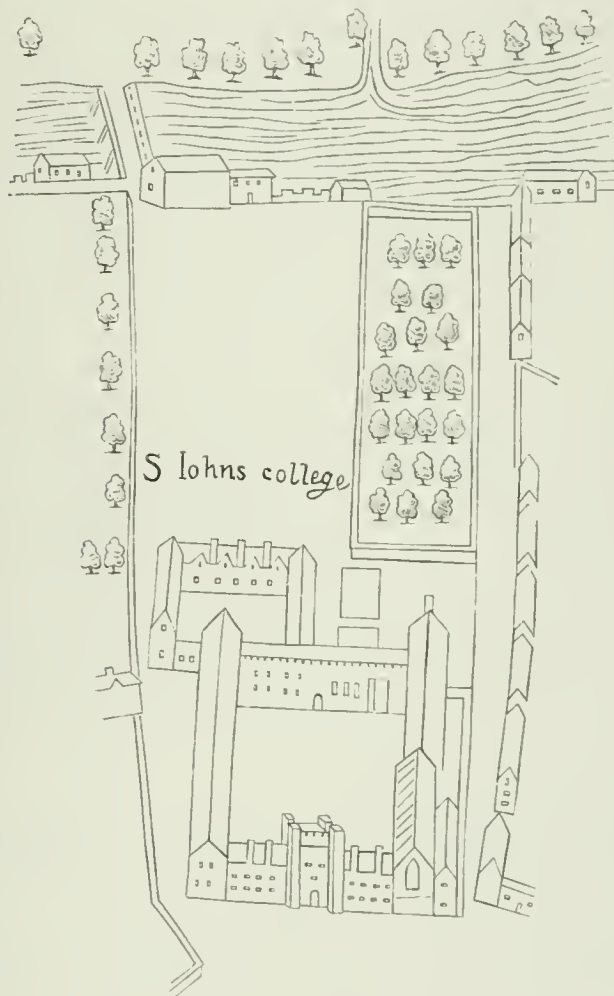 S Iohns college